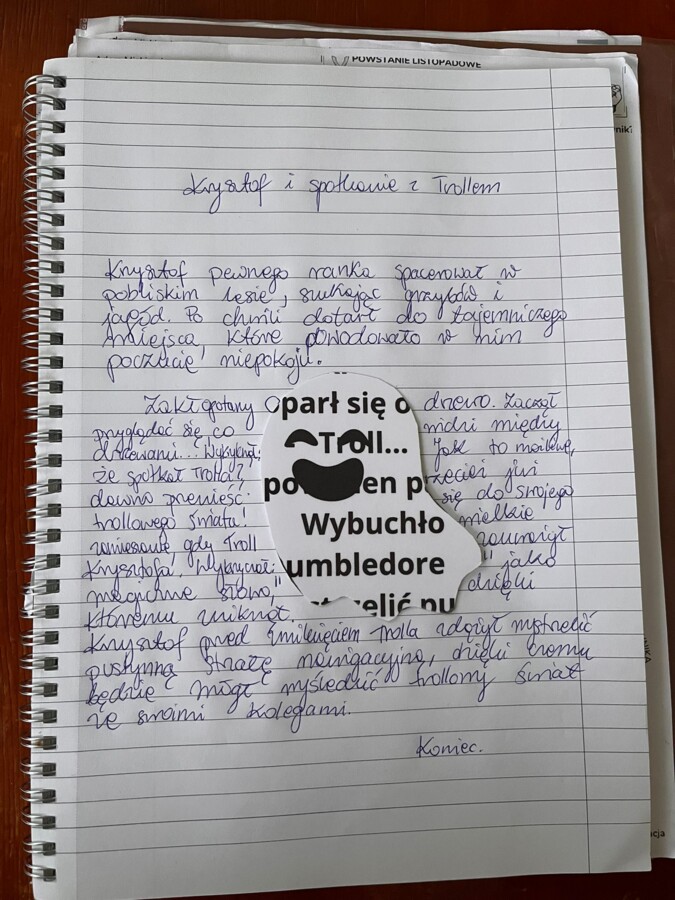 POWSTANIE LISTOPADOWE
niki
Krysztof i spotkanie z Trollem
Krysztof pewnego ranka spacerował w
pobliskim lesie, szukając grzybów i
jagód. Po chwili dotarł do tajemniczego
miejsca które powodowało w nim
poczucie niepokoju.
Zakłopotany Oparł się o drzewo. Zaczął
przyglądać się co widzi między
drzewami... Wykyknął: Troll... Jak to możliwe,
że spotkał Trolla, po en przecież już
dawno przenieść się do swojego
trollowego świata! Wybuchło wielkie
zamieszanie gdy Troll zauważył
Krysztofa! Wykrzyczał: umbledore " jako
magiczne słowo, dzięki
któremu zniknął. elić pu
Krysztof przed zniknięciem Trolla zdążył wystrzelić
pustynną strzałę nawigacyjną, dzięki czemu
będzie mógł wyśledzić trollowy świat
ze swoimi kolegami.
Koniec.
acja